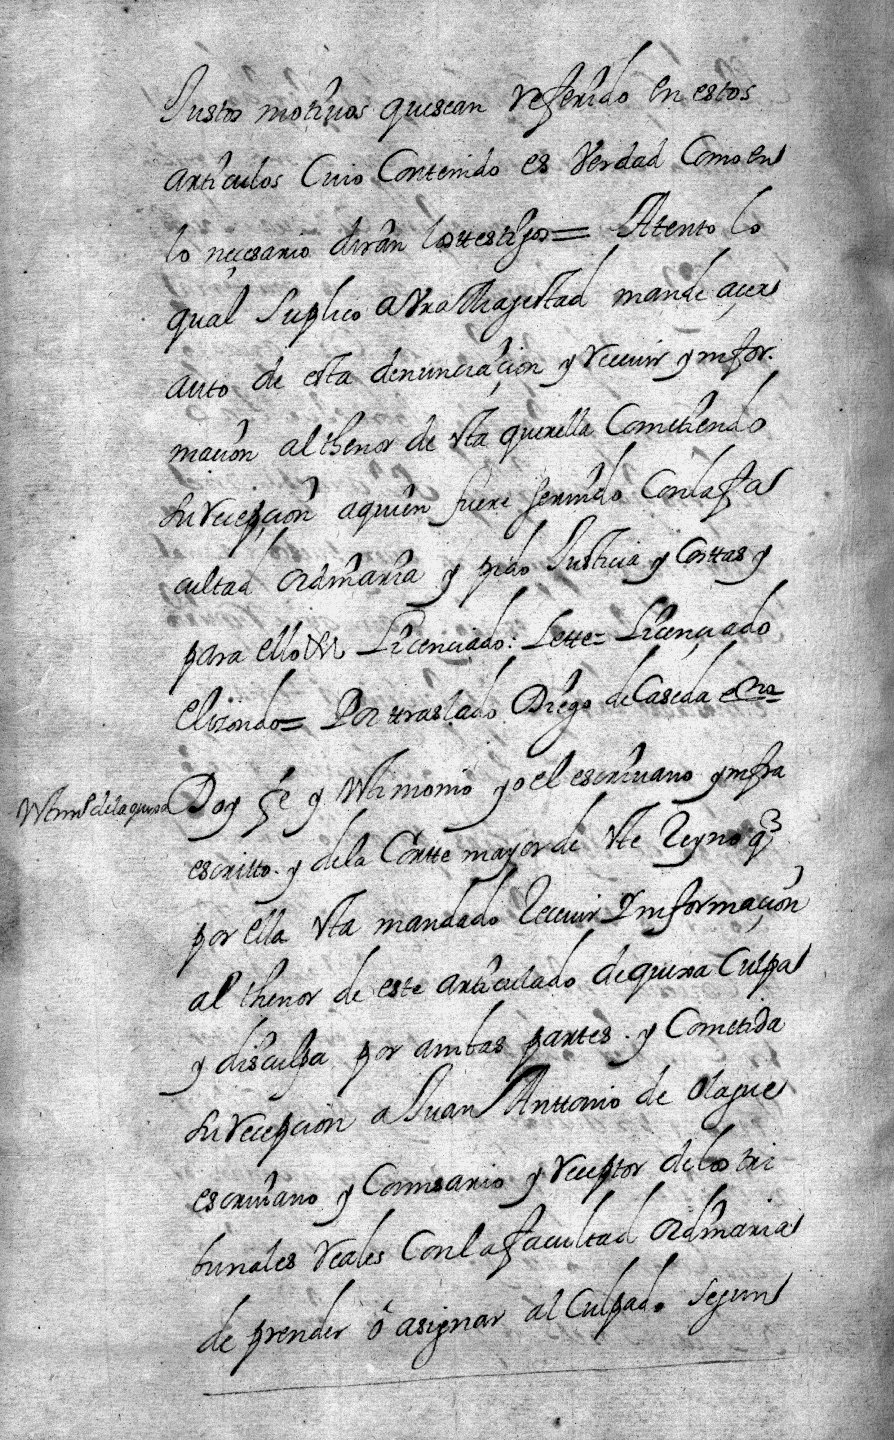 Justos motiuos quesean referido en estos
articulos Cuio Contenido es Verdad Como en
lo neçesario diran los ttestigos = Atento lo
qual Suplico a Vra Magesttad mande açer
auto de esta denunciaçion y receuir ynfor.
macion al thenor de esta querella Cometiendo
su reçepçion a quien fuere seruido Con la fa
cultad ordinaria y pido Justicia y Costtas y
para ello &c Licenciado: Lette = Licenciado
Elizondo = Por traslado Diego de Caseda esno
testimo de la quexa
Doy fe y testimonio yo el escriuano ynfra
escritto. y de la Cortte mayor de este Reyno q
por ella esta mandado Receuir Ynformaçion
al thenor de este articulado de quexa Culpa
y disculpa por ambas partes. y Cometida
su reçepcion a Juan Anttonio de Olague
escriuano y Comisario y reçeptor de los tri
bunales reales Con la facultad ordinaria
de prender ô asignar al Culpado segun